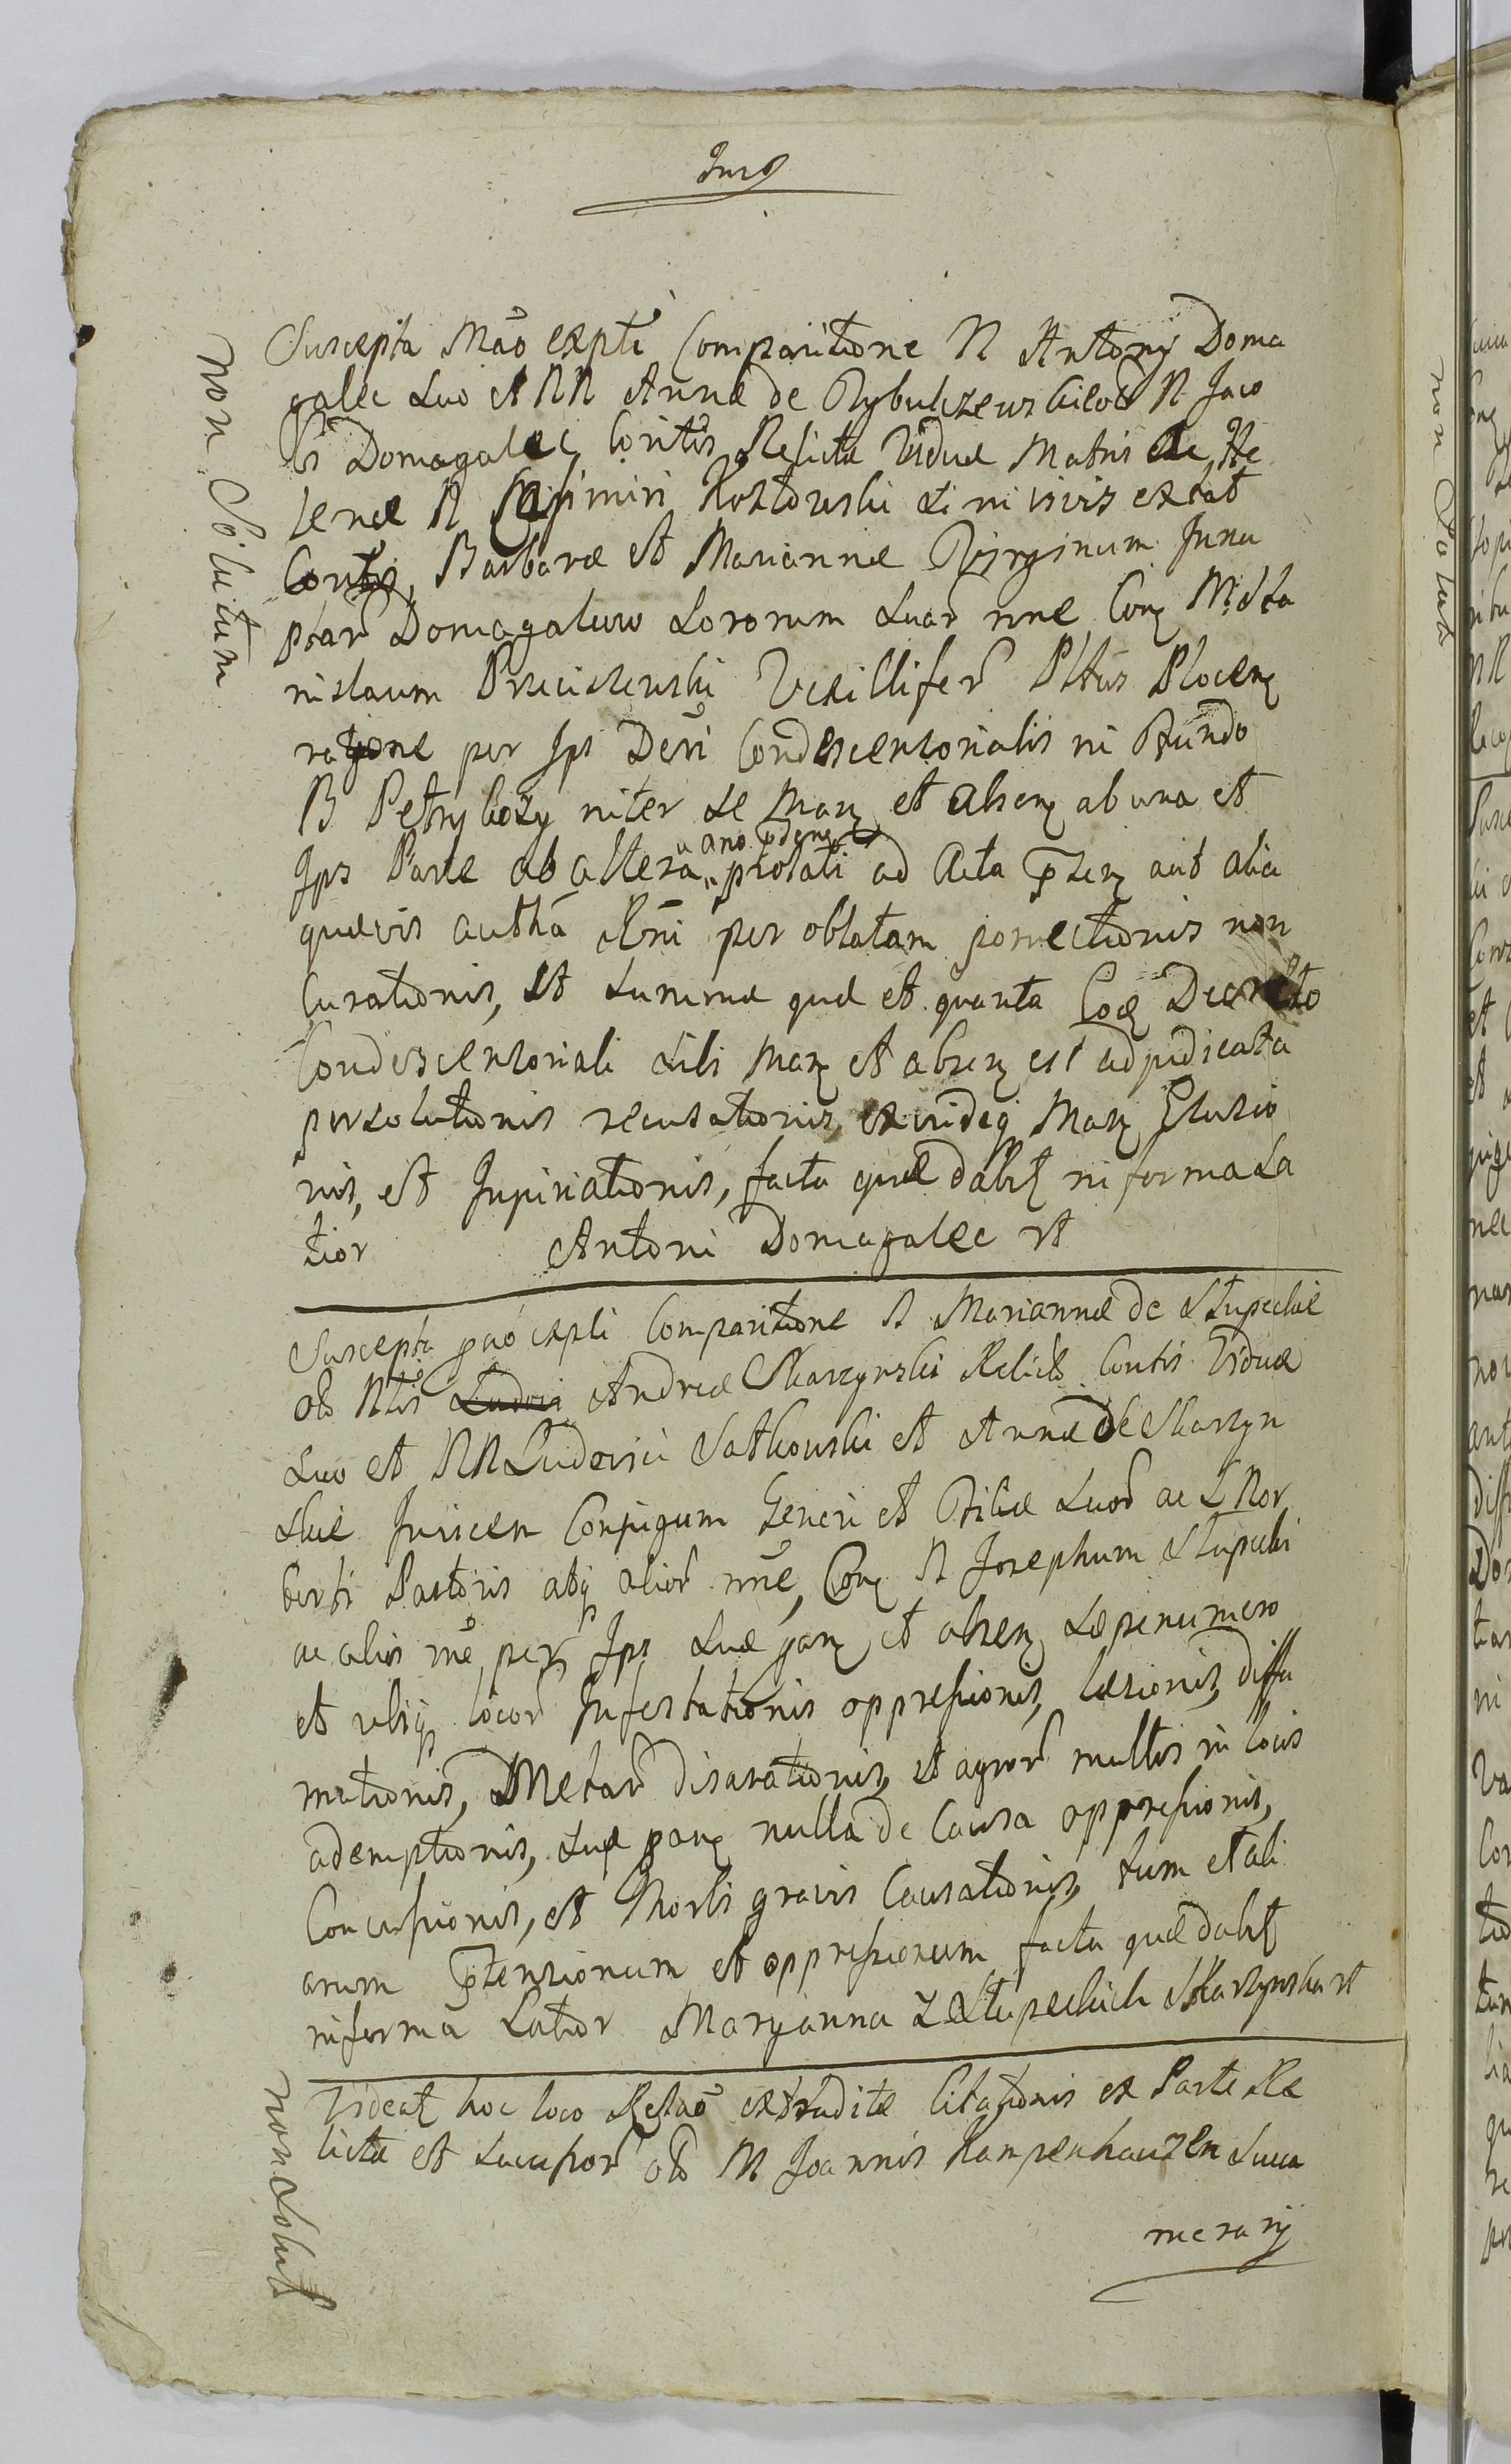 Non Solutum
Suscepta Mão exptĩ Comparitione N Antonij Doma
galec suo et NN Annæ de Rybulczewskie olb N Jaco
bi Domagalec Contis Relictæ Viduæ Matris ac He
lenæ N Casimiri Kozlowski si in vivis extat
Contis, Barbaræ et Mariannæ Virginum Innu
ptar Domagalecw Sororum suar nne Con Md Sta
nislaum Vexillifer Pltus Plocen
ratione per Ips Deri Condescensorialis in Fundo
B Petrykozy inter se Man et absen ab una et
Ips Parte ab altera prolati ad Acta aut alia
ano
quævis authã per oblatam porrectionis non
Curationis, et Summæ quæ et quanta Eoq Decreto
Condescensoriali sibi Man et absen est adjudicata
persolutionis recusationis, exindeq Man Elusio
nis, et Injuriationis, facta quæ dabit in forma La
tior Antoni Domagalec rt
Suscepta gnõ expti Comparitione N Mariannæ de Stupeckie
olb Nlis Andreæ Skarzynski Relictæ Contis Viduæ
suo et NN Ludovici Satkowski et Annæ de Skarzyn
skie Invicem Conjugum Generi et Filiæ suor ac L Nor
berti Pastoris atq alior nne, Con N Josephum Stupecki
ac alios rne per Ips suæ gan et absen sæpenumero
et ubiq locor Infestationis oppressionis, læsionis, diffa
mationis, Metar disarationis, et agror multis in locis
ademptionis, suæ gan nulla de Causa oppressionis,
Concussionis, et Morbi gravis Causationis, tum et ali
arum ptensionum et oppressionum facta quæ dabit
in forma Latior Maryanna z Stupeckich Skarzynska rt
Non Solut
Videat hoc loco Relaõ extraditæ Citationis ex Parte Re
lictæ et Succssor olb M Joannis Kampenhauzen Succa
merarij